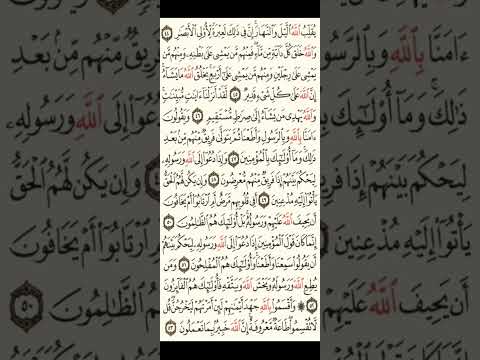 يُقَلِّبُ ٱللَّهُ ٱلَّيْلَ وَٱلنَّهَارَ إِنَّ فِى ذَٰلِكَ لَعِبْرَةً لِّأُو۟لِى ٱلْأَبْصَٰرِ ٤٤
وَٱللَّهُ خَلَقَ كُلَّ دَآبَّةٍ مِّن مَّآءٍ فَمِنْهُم مَّن يَمْشِى عَلَىٰ بَطْنِهِۦ وَمِنْهُم مَّن
يَمْشِى عَلَىٰ رِجْلَيْنِ وَمِنْهُم مَّن يَمْشِى عَلَىٰٓ أَرْبَعٍ يَخْلُقُ ٱللَّهُ مَا يَشَآءُ
إِنَّ ٱللَّهَ عَلَىٰ كُلِّ شَىْءٍ قَدِيرٌ ٤٥ لَّقَدْ أَنزَلْنَآ ءَايَٰتٍ مُّبَيِّنَٰتٍ
وَٱللَّهُ يَهْدِى مَن يَشَآءُ إِلَىٰ صِرَٰطٍ مُّسْتَقِيمٍ ٤٦ وَيَقُولُونَ
ءَامَنَّا بِٱللَّهِ وَبِٱلرَّسُولِ وَأَطَعْنَا ثُمَّ يَتَوَلَّىٰ فَرِيقٌ مِّنْهُم مِّنۢ بَعْدِ
ذَٰلِكَ وَمَآ أُو۟لَٰٓئِكَ بِٱلْمُؤْمِنِينَ ٤٧ وَإِذَا دُعُوٓا۟ إِلَى ٱللَّهِ وَرَسُولِهِۦ
لِيَحْكُمَ بَيْنَهُمْ إِذَا فَرِيقٌ مِّنْهُم مُّعْرِضُونَ ٤٨ وَإِن يَكُن لَّهُمُ ٱلْحَقُّ
يَأْتُوٓا۟ إِلَيْهِ مُذْعِنِينَ ٤٩ أَفِى قُلُوبِهِم مَّرَضٌ أَمِ ٱرْتَابُوٓا۟ أَمْ يَخَافُونَ
أَن يَحِيفَ ٱللَّهُ عَلَيْهِمْ وَرَسُولُهُۥ بَلْ أُو۟لَٰٓئِكَ هُمُ ٱلظَّٰلِمُونَ ٥٠
إِنَّمَا كَانَ قَوْلَ ٱلْمُؤْمِنِينَ إِذَا دُعُوٓا۟ إِلَى ٱللَّهِ وَرَسُولِهِۦ لِيَحْكُمَ بَيْنَهُمْ
أَن يَقُولُوا۟ سَمِعْنَا وَأَطَعْنَا وَأُو۟لَٰٓئِكَ هُمُ ٱلْمُفْلِحُونَ ٥١ وَمَن
يُطِعِ ٱللَّهَ وَرَسُولَهُۥ وَيَخْشَ ٱللَّهَ وَيَتَّقْهِ فَأُو۟لَٰٓئِكَ هُمُ ٱلْفَآئِزُونَ
٥٢ وَأَقْسَمُوا۟ بِٱللَّهِ جَهْدَ أَيْمَٰنِهِمْ لَئِنْ أَمَرْتَهُمْ لَيَخْرُجُنَّ قُل
لَّا تُقْسِمُوا۟ طَاعَةٌ مَّعْرُوفَةٌ إِنَّ ٱللَّهَ خَبِيرٌۢ بِمَا تَعْمَلُونَ ٥٣